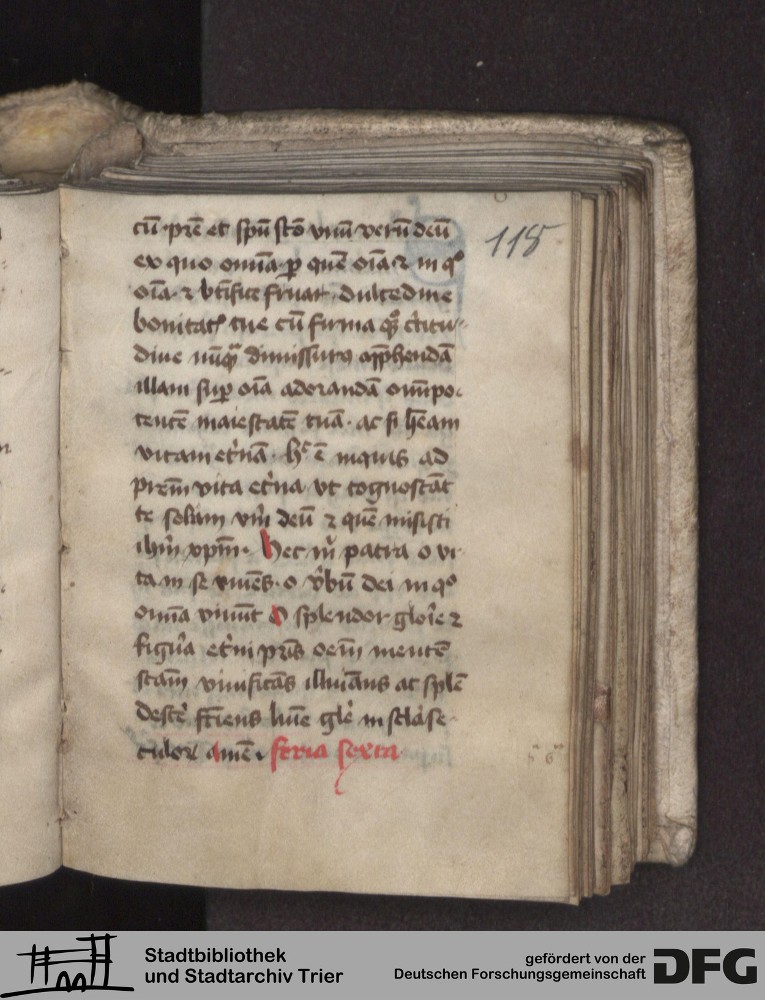 cū pr̄e et spū sc̄o vnū verū deū
ex quo omīa p̱ quē oīa ⁊ in qͦ
oīa ⁊ vt fruar dulcedine
bonitatꝭ tue cū firma certitu
dine nūqͣ dimissurꝯ app̄hendā
illam sup̱ oīa adorandā omīpo
tentē maiestatē tuā · ac si hēam
vitam et̄nā · hͨ ē inquis ad
prēm vita et̄na vt cognoscāt
te solum vm̄ deū ⁊ quē misisti
ihm̄ xpm̄ · Hec m̄ patra o vi
ta in se viuēs · o v̄bū dei in qͦ
omīa viuūt O splendor glor̄ie ⁊
figūa et̄ni pr̄is oēm mentē
scām viuificās illuīans ac splē
descē fc̄iens lūie gl̄e in scl̄a se
culoꝝ amē · feria sexta
118
Stadtbibliothek
und Stadtarchiv Trier
gefördert von der
Deutschen Forschungsgemeinschaft
DFG